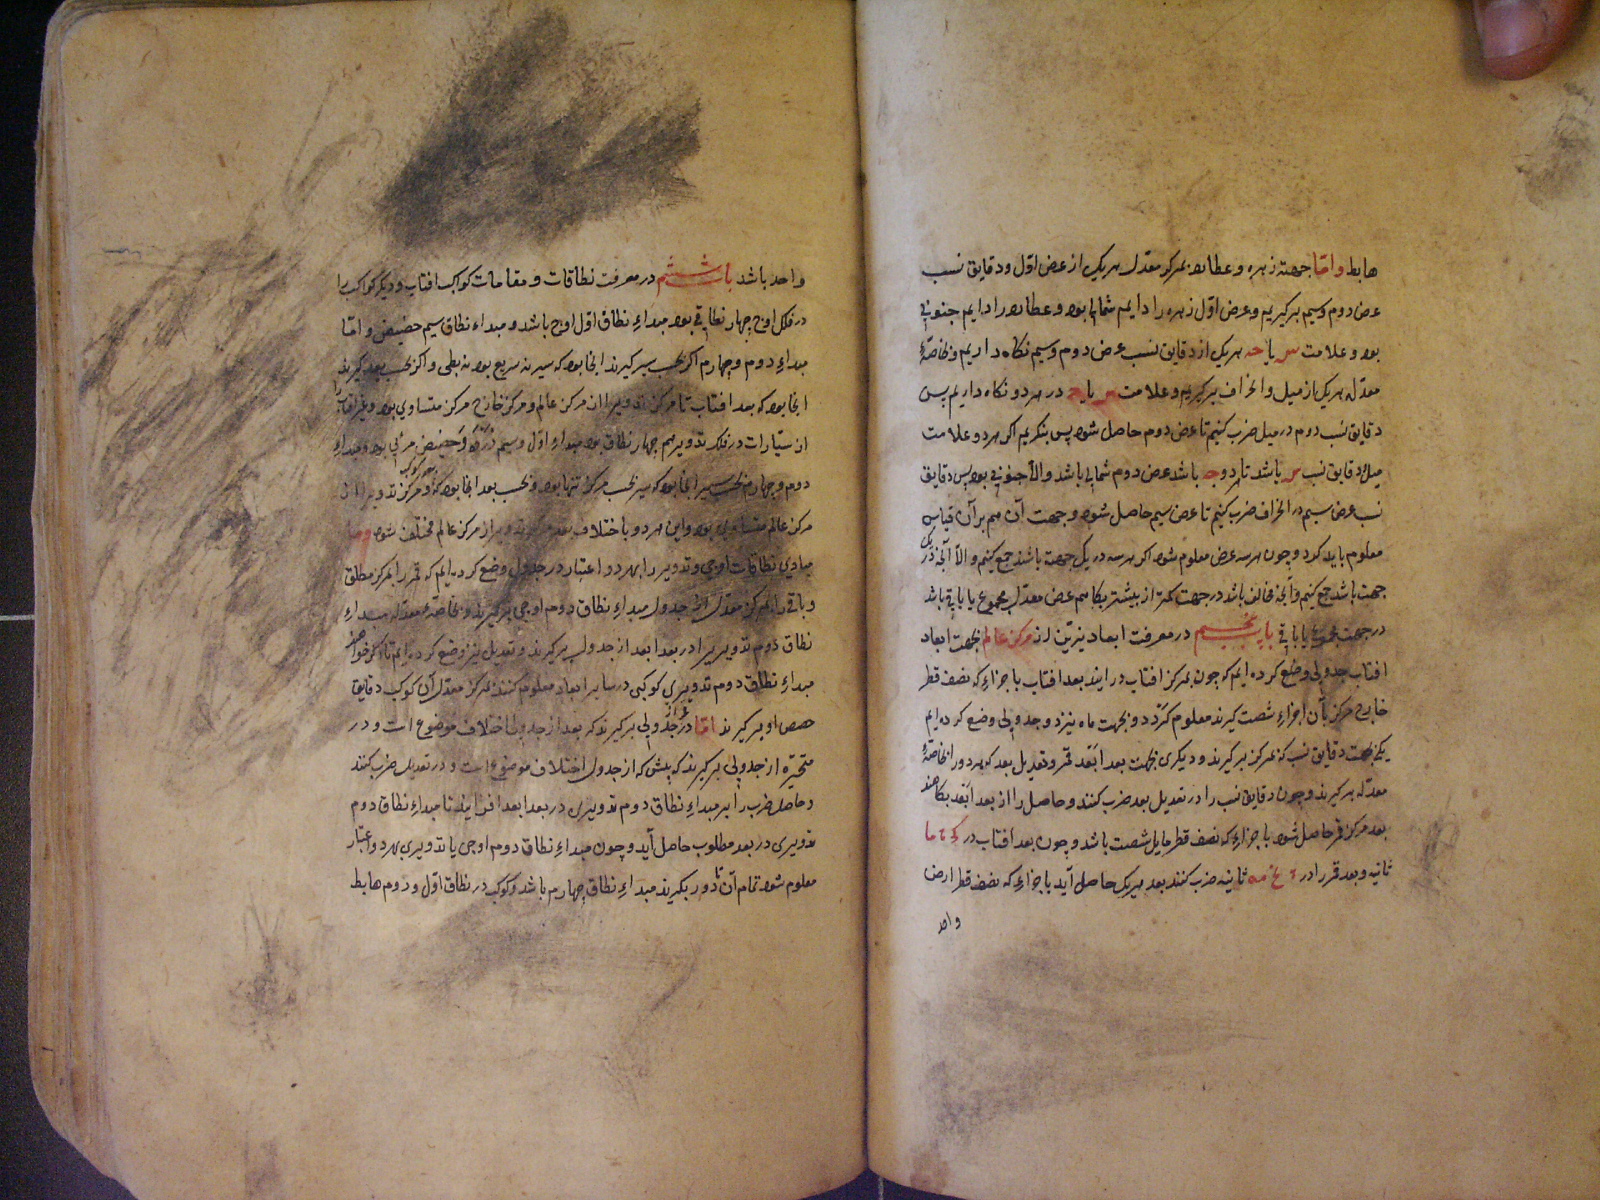 هابط و امّا جهت زهره و عطارد بمرکز معدل هریک از عرض اوّل و دقایق نسب
عرض دوم و سیم برگیریم و عرض اوّل زهره را دایم شمالی بود و عطارد را دایم جنوبی
بود و علامت هریک از دقایق نسب عرض دوم و سیم نکاه داریم و بخاصّهٔ
معدّله هریک از میل و انحراف برگیریم و علامت در هر دو نکاه داریم پس
دقایق نسب دوم در میل ضرب کنیم تا عرض دوم حاصل شود پس بنکریم اکر هر دو علامت
میل و دقایق نسب باشد یا هر دو باشد عرض دوم شمالی باشد والّا جنوبی بود پس دقایق
نسب عرض سیم در انحراف ضرب کنیم تا عرض سیم حاصل شود و جهت آن هم بر آن قیاس
معلوم باید کرد و چون هر سه عرض معلوم شود اکر هر سه در یک جهت باشد جمع کنیم والّا آنچه در یک
جهت باشد جمع کنیم و آنچه مخالف باشد در جهت کمتر از بیشتر بکاهیم عرض معدّل مجموع یا باقی باشد
در جهت مجموع یا باقی باب پنجم در معرفت ابعاد نیّرین از مرکز عالم بجهت ابعاد
افتاب جدولی وضع کرده ایم که چون بمرکز افتاب در ایند بعد افتاب باجزاء که نصف قطر
خارج مرکز بآن اجزاء شصت گیرند معلوم کردد و بجهت ماه نیز دو جدولی وضع کرده ایم
یکی بجهت دقایق نسب که بمرکز برگیرند و دیکری بجهت بعد ابعد قمر و تعدیل بعد که هر دو را بخاصّهٔ
معدّله برگیرند و چون دقایق نسب را در تعدیل بعد ضرب کنند و حاصل را از بعد ابعد بکاهند
بعد مرکز قمر حاصل شود باجزاء که نصف قطر مایل شصت باشد و چون بعد افتاب در
ثانیه و بعد قمر را در ثانیه ضرب کنند بعد هریک حاصل آید باجزاء که نصف قطر ارض
واحد
واحد باشد باب ششم در معرفت نطاقات و مقامات کواکب افتاب و دیکر کواکب را
در فلک اوج چهار نطاق بود مبداء نطاق اوّل اوج باشد و مبداء نطاق سیم حضیض و امّا
مبداء دوم و چهارم اکر بحسب سیر گیرند انجا بود که سیر نه سریع بود نه بطی و اکر بحسب بعد گیرند
انجا بود که بعد افتاب تا مرکز تدویر از مرکز عالم و مرکز خارج مرکز متساوی بود و غیر افتاب را
از سیّارات در فلک تدویر هم چهار نطاق بود مبداء اوّل و سیم ذروه و حضیض مرئی بود و مبداء
دوم و چهارم بحسب سیر انجا بود که سیر بحسب مرکز تنها بود و بحسب بعد انجا بود که
مرکز عالم متساوی بود و این هر دو باختلاف بعد مرکز تدویر از مرکز عالم مختلف شود و ما
مبادی نطاقات اوجی و تدویر را بهر دو اعتبار در جدول وضع کرده ایم که قمر را بمرکز مطلق
و باقی را بمرکز معدّل از جدول مبداء نطاق دوم اوجی برگیرند و بخاصّهٔ معدّله مبداء
نطاق دوم تدویری را در بعد ابعد از جدول برگیرند و تعدیل نیز وضع کرده ایم تا اکر خواهند
مبداء نطاق دوم تدویری کوکبی در سایر ابعاد معلوم کنند بمرکز معدّل آن کوکب دقایق
حصص او برگیرند امّا در قمر از جدولی برگیرند که بعد از جدول اختلاف موضوع است و در
متحیّره از جدولی برگیرند که پیش که از جدول اختلاف موضوع است و در تعدیل ضرب کنند
و حاصل ضرب را بر مبداء نطاق دوم تدویری در بعد ابعد افزایند تا مبداء نطاق دوم
تدویری در بعد مطلوب حاصل آید و چون مبداء نطاق دوم اوجی یا تدویری بهر دو اعتبار
معلوم شود تمام آن تا دور بگیرند مبداء نطاق چهارم باشد و کوکب در نطاق اوّل و دوم هابط